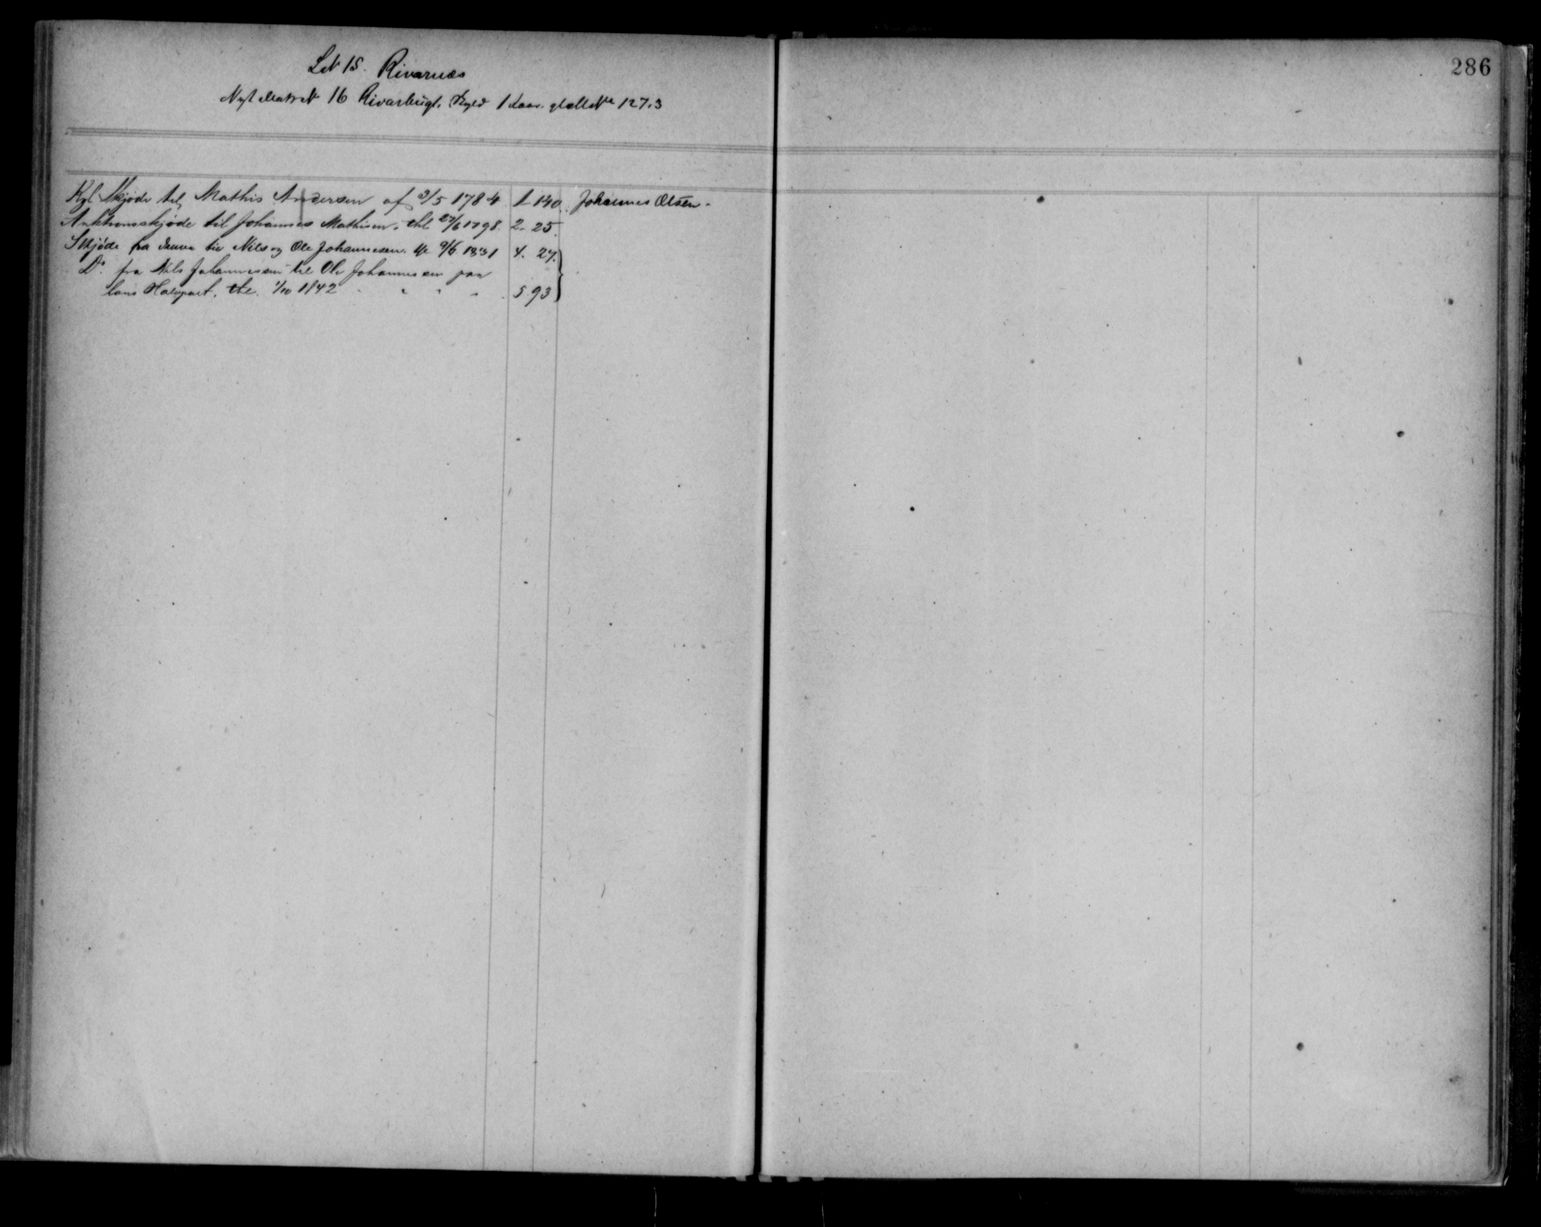 286
L№ 15. Rivarnæs
Nyt Matr № 16 Rivarbugt. Skyld 1 Daler. gl. Mat№ 127.3
Kgl. Skjøde til Mathis Andersen af 3/5 1784 1. 140. Johannes Olsen.
Auktionsskjøde til Johannes Mathisen, thl. 1798. 2. 25.
Skjøde fra denne til Nils og Ole Johannessen 1831 4. 27.
Do fra Nils Johannessen til Ole Johannessen paa
hans Halvpart, thl. 1/10 1842 " " " 5 93